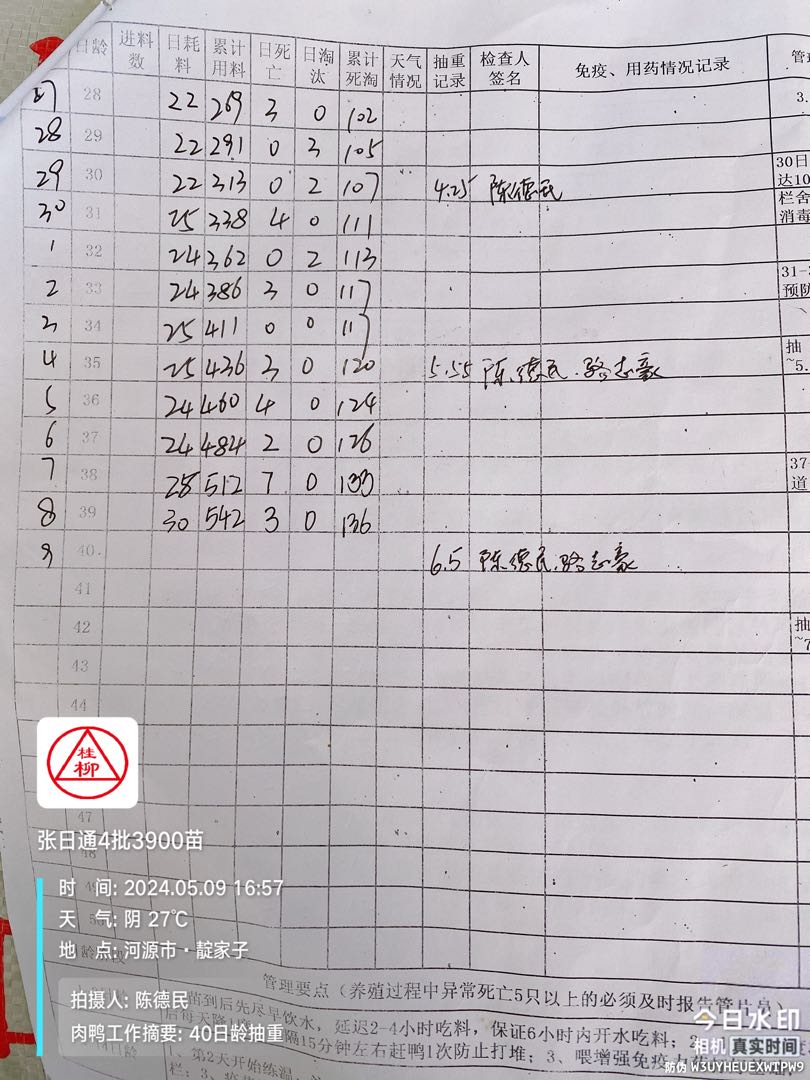 日龄 进料数 日耗料 累计用料 日死亡 日淘汰 累计死淘 天气情况 抽重记录 检查人签名 免疫、用药情况记录 管理
27 28 22 269 3 0 102 3.
28 29 22 291 0 3 105
29 30 22 313 0 2 107 4.25 陈德民 30日 达10
30 31 25 338 4 0 111 栏舍 消毒
1 32 24 362 0 2 113
2 33 24 386 3 0 117 31-3 预防
3 34 25 411 0 0 117
4 35 25 436 3 0 120 5.55 陈德民.骆志豪 抽 ~5.
5 36 24 460 4 0 124
6 37 24 484 2 0 126
7 38 28 512 7 0 133 37- 道
8 39 30 542 3 0 136
9 40. 6.5 陈德民.骆志豪
41
42 抽 ~7
43
44
桂柳
47
张日通4批3900苗
48
时 间: 2024.05.09 16:57
天 气: 阴 27℃
地 点: 河源市·靛家子
管理要点（养殖过程中异常死亡5只以上的必须及时报告管片员）
拍摄人: 陈德民
苗到后先尽早饮水，延迟2-4小时吃料，保证6小时内开水吃料；
今日水印
肉鸭工作摘要: 40日龄抽重
隔15分钟左右赶鸭1次防止打堆；3、喂增强免疫力
相机 真实时间
1、第2天开始练温，
栏；3、
防伪 W3UYHEUEXWTPW9